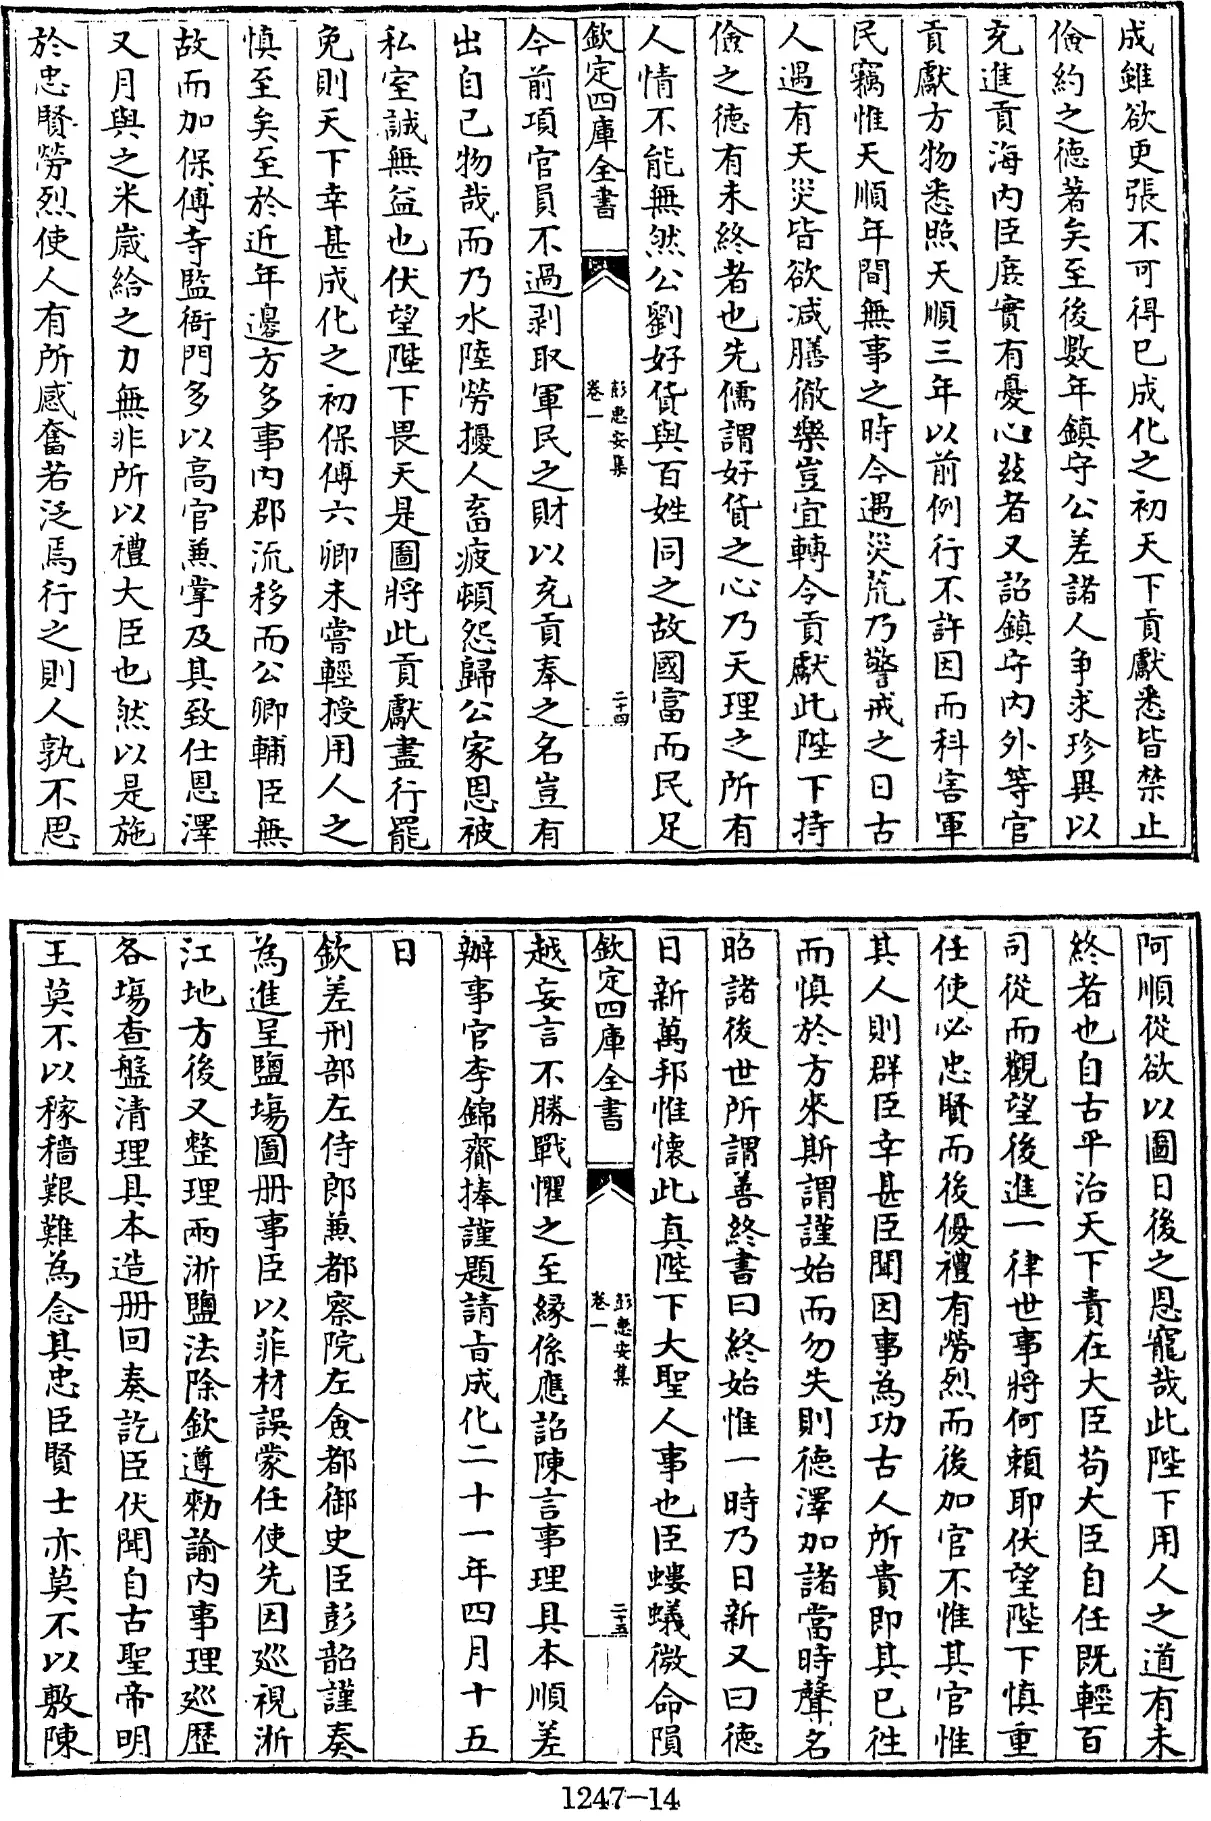 成雖欲更張不可得已成化之初天下貢獻悉皆禁止
儉約之徳著矣至後數年鎮守公差諸人争求珍異以
充進貢海内臣庶實有憂心玆者又詔鎮守内外等官
貢獻方物悉照天順三年以前例行不許因而科害軍
民竊惟天順年間無事之時今遇災荒乃警戒之日古
人遇有天災皆欲減膳徹樂豈宜轉令貢獻此陛下持
儉之徳有未終者也先儒謂好貨之心乃天理之所有
人情不能無然公劉好貨與百姓同之故國富而民足
欽定四庫全書
彭惠安集
卷一
二十四
今前項官員不過剥取軍民之財以充貢奉之名豈有
出自己物哉而乃水陸勞擾人畜疲頓怨歸公家恩被
私室誠無益也伏望陛下畏天是圖將此貢獻盡行罷
免則天下幸甚成化之初保傅六卿未嘗輕授用人之
慎至矣至於近年邊方多事内郡流移而公卿輔臣無
故而加保傅寺監衙門多以高官兼掌及其致仕恩澤
又月與之米嵗給之力無非所以禮大臣也然以是施
於忠賢勞烈使人有所感奮若泛焉行之則人孰不思
阿順從欲以圖日後之恩寵哉此陛下用人之道有未
終者也自古平治天下責在大臣苟大臣自任既輕百
司從而觀望後進一律世事將何賴耶伏望陛下慎重
任使必忠賢而後優禮有勞烈而後加官不惟其官惟
其人則群臣幸甚臣聞因事為功古人所貴即其已徃
而慎於方來斯謂謹始而勿失則徳澤加諸當時聲名
昭諸後世所謂善終書曰終始惟一時乃日新又曰徳
日新萬邦惟懷此真陛下大聖人事也臣螻蟻微命隕
欽定四庫全書
彭惠安集
卷一
二十五
越妄言不勝戰懼之至縁係應詔陳言事理具本順差
辦事官李錦齎捧謹題請㫖成化二十一年四月十五
日
欽差刑部左侍郎兼都察院左僉都御史臣彭韶謹奏
為進呈鹽塲圖册事臣以菲材誤蒙任使先因廵視浙
江地方後又整理兩浙鹽法除欽遵勑諭内事理廵歴
各塲查盤清理具本造册回奏訖臣伏聞自古聖帝明
王莫不以稼穡艱難為念其忠臣賢士亦莫不以敷陳
1247-14